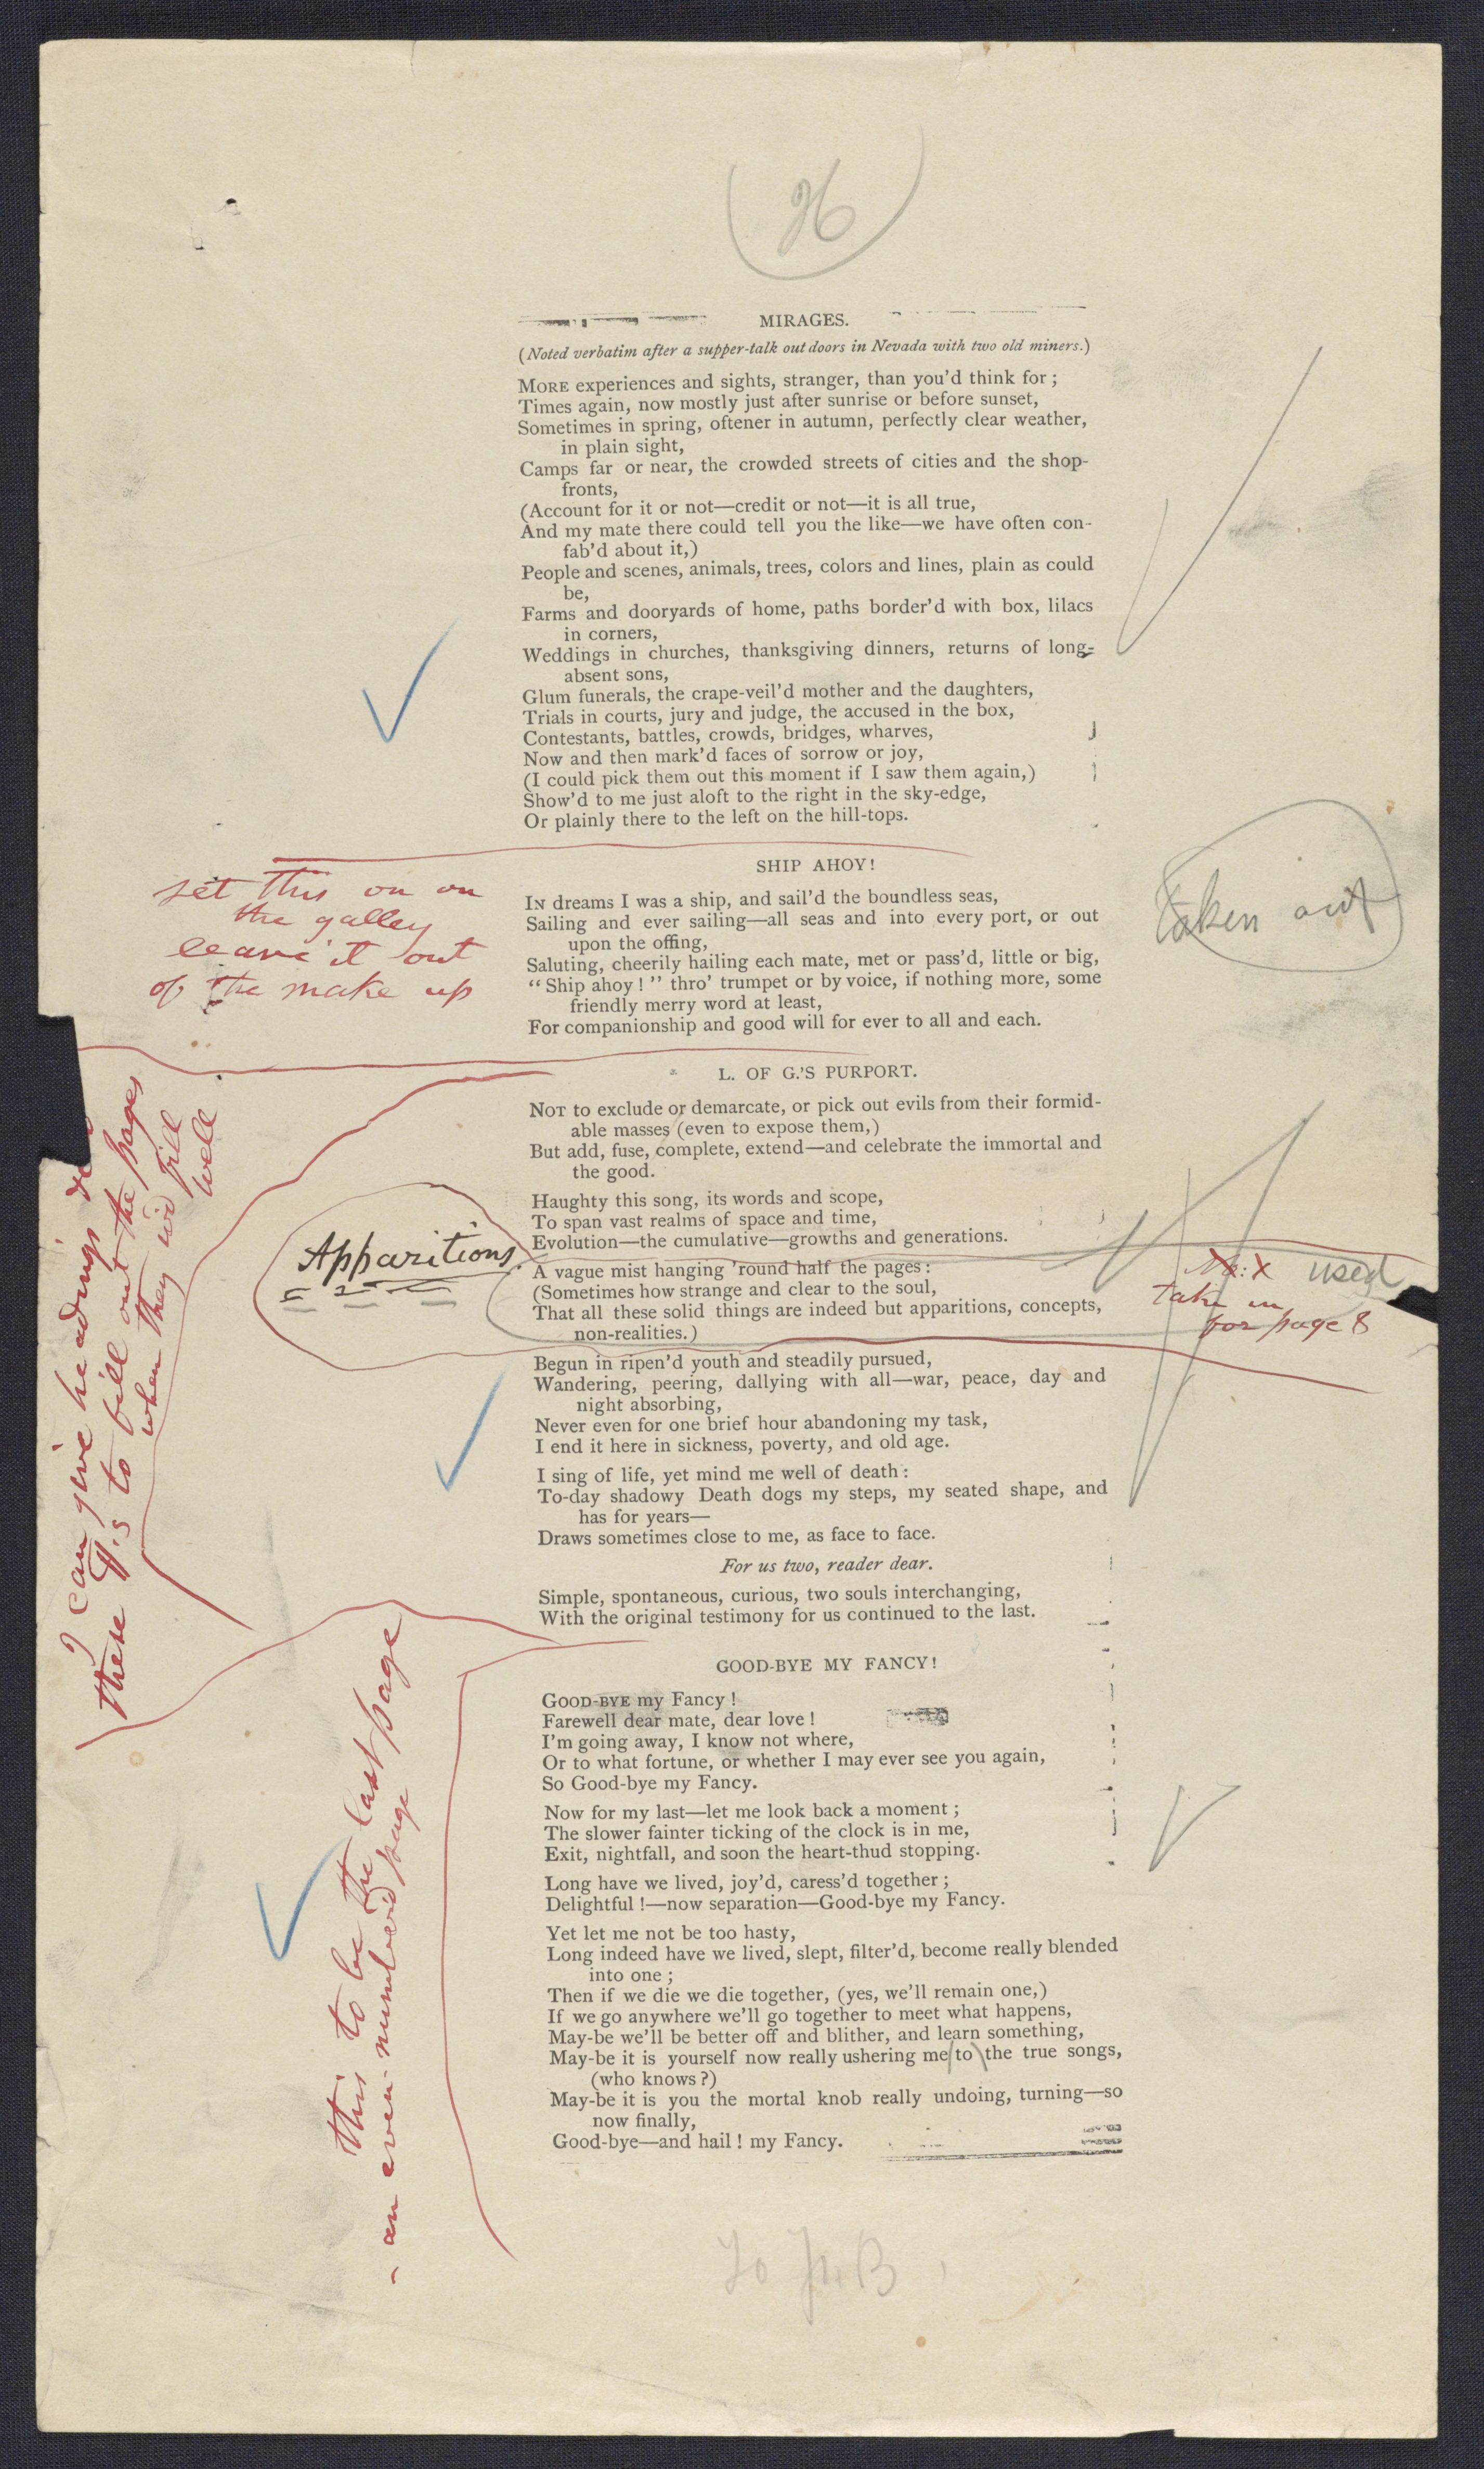 26
MIRAGES.
(Noted verbatim after a supper-talk out doors in Nevada with two old miners.)
MORE experiences and sights, stranger, than you'd think for;
Times again, now mostly just after sunrise or before sunset,
Sometimes in spring, oftener in autumn, perfectly clear weather,
in plain sight,
Camps far or near, the crowded streets of cities and the shop-
fronts,
(Account for it or not—credit or not—it is all true,
And my mate there could tell you the like—we have often con-
fab'd about it,)
People and scenes, animals, trees, colors and lines, plain as could
be,
Farms and dooryards of home, paths border'd with box, lilacs
in corners,
Weddings in churches, thanksgiving dinners, returns of long-
absent sons,
Glum funerals, the crape-veil'd mother and the daughters,
Trials in courts, jury and judge, the accused in the box,
Contestants, battles, crowds, bridges, wharves,
Now and then mark'd faces of sorrow or joy,
(I could pick them out this moment if I saw them again,)
Show'd to me just aloft to the right in the sky-edge,
Or plainly there to the left on the hill-tops.
set this on on
the galley
leave it out
of the make up
Taken out
SHIP AHOY!
IN dreams I was a ship, and sail'd the boundless seas,
Sailing and ever sailing—all seas and into every port, or out
upon the offing,
Saluting, cheerily hailing each mate, met or pass'd, little or big,
"Ship ahoy!" thro' trumpet or by voice, if nothing more, some
friendly merry word at least,
For companionship and good will for ever to all and each.
L. OF G.'S PURPORT.
NOT to exclude or demarcate, or pick out evils from their formid-
able masses (even to expose them,)
But add, fuse, complete, extend—and celebrate the immortal and
the good.
Haughty this song, its words and scope,
To span vast realms of space and time,
Evolution—the cumulative—growths and generations.
Apparitions.
A vague mist hanging 'round half the pages:
(Sometimes how strange and clear to the soul,
That all these solid things are indeed but apparitions, concepts,
non-realities.)
used
take in
for page 8
Begun in ripen'd youth and steadily pursued,
Wandering, peering, dallying with all—war, peace, day and
night absorbing,
Never even for one brief hour abandoning my task,
I end it here in sickness, poverty, and old age.
I sing of life, yet mind me well of death:
To-day shadowy Death dogs my steps, my seated shape, and
has for years—
Draws sometimes close to me, as face to face.
For us two, reader dear.
Simple, spontaneous, curious, two souls interchanging,
With the original testimony for us continued to the last.
I can give headings
these ¶'s to fill out the pages
when they will fill
well
GOOD-BYE MY FANCY!
GOOD-BYE my Fancy!
Farewell dear mate, dear love!
I'm going away, I know not where,
Or to what fortune, or whether I may ever see you again,
So Good-bye my Fancy.
Now for my last—let me look back a moment;
The slower fainter ticking of the clock is in me,
Exit, nightfall, and soon the heart-thud stopping.
Long have we lived, joy'd, caress'd together;
Delightful!—now separation—Good-bye my Fancy.
Yet let me not be too hasty,
Long indeed have we lived, slept, filter'd, become really blended
into one;
Then if we die we die together, (yes, we'll remain one,)
If we go anywhere we'll go together to meet what happens,
May-be we'll be better off and blither, and learn something,
May-be it is yourself now really ushering me to the true songs,
(who knows?)
May-be it is you the mortal knob really undoing, turning—so
now finally,
Good-bye—and hail! my Fancy.
this to be the last page
- an even-number'd page